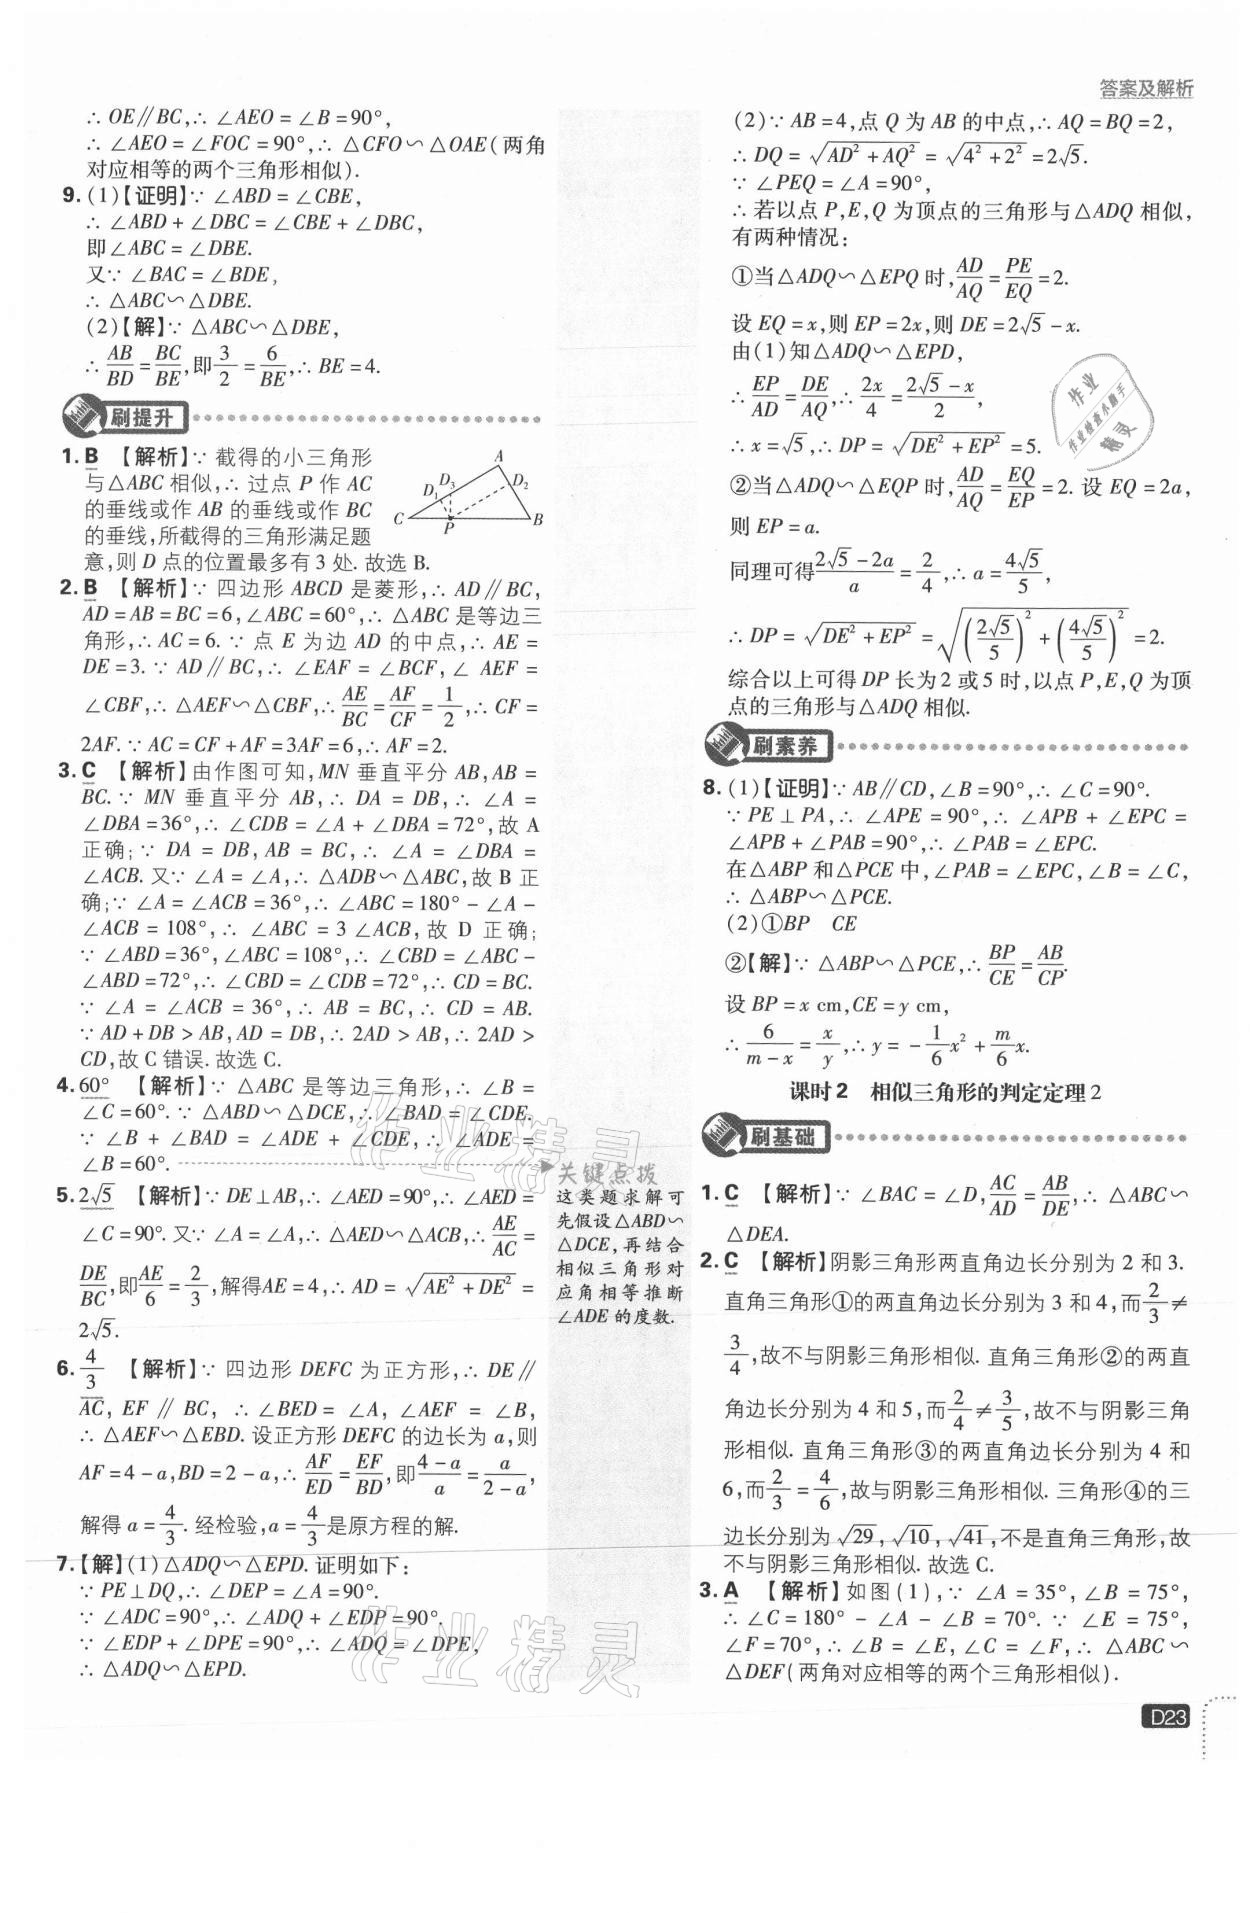 答案及解析
∴ OE∥BC,∴ ∠AEO=∠B=90°,
∴ ∠AEO=∠FOC=90°,∴ △CFO∽△OAE(两角
对应相等的两个三角形相似).
9.(1)【证明】∵ ∠ABD=∠CBE,
∴ ∠ABD+∠DBC=∠CBE+∠DBC,
即∠ABC=∠DBE.
又∵ ∠BAC=∠BDE,
∴ △ABC∽△DBE.
(2)【解】∵ △ABC∽△DBE,
∴ AB/BD=BC/BE,即3/2=6/BE,∴ BE=4.
刷提升
1.B 【解析】∵ 截得的小三角形
与△ABC相似,∴ 过点 P 作 AC
的垂线或作 AB 的垂线或作 BC
的垂线,所截得的三角形满足题
意,则 D 点的位置最多有 3 处. 故选 B.
A
D₁ D₃ D₂
C P B
2.B 【解析】∵ 四边形 ABCD 是菱形,∴ AD∥BC,
AD=AB=BC=6,∠ABC=60°,∴ △ABC 是等边三
角形,∴ AC=6. ∵ 点 E 为边 AD 的中点,∴ AE=
DE=3. ∵ AD∥BC,∴ ∠EAF=∠BCF,∠ AEF=
∠CBF,∴ △AEF∽△CBF,∴ AE/BC=AF/CF=1/2,∴ CF=
2AF. ∵ AC=CF+AF=3AF=6,∴ AF=2.
3.C 【解析】由作图可知,MN 垂直平分 AB,AB=
BC. ∵ MN 垂直平分 AB,∴ DA=DB,∴ ∠A=
∠DBA=36°,∴ ∠CDB=∠A+∠DBA=72°,故 A
正确;∵ DA=DB,AB=BC,∴ ∠A=∠DBA=
∠ACB. 又∵ ∠A=∠A,∴ △ADB∽△ABC,故 B 正
确;∵ ∠A=∠ACB=36°,∴ ∠ABC=180°-∠A-
∠ACB=108°,∴ ∠ABC=3∠ACB,故 D 正确;
∵ ∠ABD=36°,∠ABC=108°,∴ ∠CBD=∠ABC-
∠ABD=72°,∴ ∠CBD=∠CDB=72°,∴ CD=BC.
∵ ∠A=∠ACB=36°,∴ AB=BC,∴ CD=AB.
∵ AD+DB>AB,AD=DB,∴ 2AD>AB,∴ 2AD>
CD,故 C 错误. 故选 C.
4.60° 【解析】∵ △ABC 是等边三角形,∴ ∠B=
∠C=60°. ∵ △ABD∽△DCE,∴ ∠BAD=∠CDE.
∵ ∠B+∠BAD=∠ADE+∠CDE,∴ ∠ADE=
∠B=60°.
5.2√5 【解析】∵ DE⊥AB,∴ ∠AED=90°,∴ ∠AED=
∠C=90°. 又∵ ∠A=∠A,∴ △AED∽△ACB,∴ AE/AC=
DE/BC,即AE/6=2/3,解得AE=4,∴ AD=√(AE²+DE²)=
2√5.
6.4/3 【解析】∵ 四边形 DEFC 为正方形,∴ DE∥
AC,EF∥BC,∴ ∠BED=∠A,∠AEF=∠B,
∴ △AEF∽△EBD. 设正方形 DEFC 的边长为 a,则
AF=4-a,BD=2-a,∴ AF/ED=EF/BD,即(4-a)/a=a/(2-a),
解得 a=4/3. 经检验,a=4/3是原方程的解.
7.【解】(1)△ADQ∽△EPD. 证明如下:
∵ PE⊥DQ,∴ ∠DEP=∠A=90°.
∵ ∠ADC=90°,∴ ∠ADQ+∠EDP=90°.
∵ ∠EDP+∠DPE=90°,∴ ∠ADQ=∠DPE,
∴ △ADQ∽△EPD.
关键点拨
这类题求解可
先假设△ABD∽
△DCE,再结合
相似三角形对
应角相等推断
∠ADE的度数.
(2)∵ AB=4,点 Q 为 AB 的中点,∴ AQ=BQ=2,
∴ DQ=√(AD²+AQ²)=√(4²+2²)=2√5.
∵ ∠PEQ=∠A=90°,
∴ 若以点 P,E,Q 为顶点的三角形与△ADQ 相似,
有两种情况:
①当△ADQ∽△EPQ 时,AD/AQ=PE/EQ=2.
设 EQ=x,则 EP=2x,则 DE=2√5-x.
由(1)知△ADQ∽△EPD,
∴ EP/AD=DE/AQ,∴ 2x/4=(2√5-x)/2,
∴ x=√5,∴ DP=√(DE²+EP²)=5.
②当△ADQ∽△EQP 时,AD/AQ=EQ/EP=2. 设 EQ=2a,
则 EP=a.
同理可得(2√5-2a)/a=2/4,∴ a=4√5/5,
∴ DP=√(DE²+EP²)=√((2√5/5)²+(4√5/5)²)=2.
综合以上可得 DP 长为 2 或 5 时,以点 P,E,Q 为顶
点的三角形与△ADQ 相似.
刷素养
8.(1)【证明】∵ AB∥CD,∠B=90°,∴ ∠C=90°.
∵ PE⊥PA,∴ ∠APE=90°,∴ ∠APB+∠EPC=
∠APB+∠PAB=90°,∴ ∠PAB=∠EPC.
在△ABP 和△PCE 中,∠PAB=∠EPC,∠B=∠C,
∴ △ABP∽△PCE.
(2)①BP CE
②【解】∵ △ABP∽△PCE,∴ BP/CE=AB/CP.
设 BP=x cm,CE=y cm,
∴ 6/(m-x)=x/y,∴ y=-1/6x²+m/6x.
课时2 相似三角形的判定定理2
刷基础
1.C 【解析】∵ ∠BAC=∠D,AC/AD=AB/DE,∴ △ABC∽
△DEA.
2.C 【解析】阴影三角形两直角边长分别为 2 和 3.
直角三角形①的两直角边长分别为 3 和 4,而2/3≠
3/4,故不与阴影三角形相似. 直角三角形②的两直
角边长分别为 4 和 5,而2/4≠3/5,故不与阴影三角
形相似. 直角三角形③的两直角边长分别为 4 和
6,而2/3=4/6,故与阴影三角形相似. 三角形④的三
边长分别为√29,√10,√41,不是直角三角形,故
不与阴影三角形相似. 故选 C.
3.A 【解析】如图(1),∵ ∠A=35°,∠B=75°,
∴ ∠C=180°-∠A-∠B=70°. ∵ ∠E=75°,
∠F=70°,∴ ∠B=∠E,∠C=∠F,∴ △ABC∽
△DEF(两角对应相等的两个三角形相似).
D23
作业精灵
作业精灵
作业
作业检查小助手
精灵